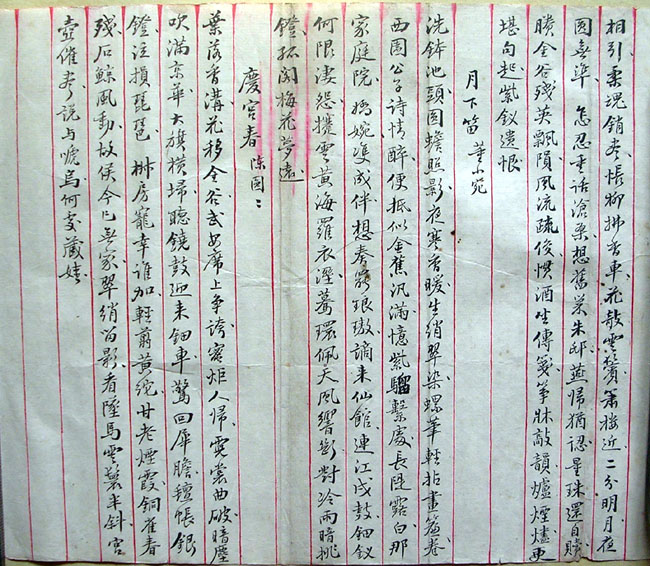 相引柔魂銷盡悵柳拂香車花敲雲鬢簫樓近二分明月夜
圓無準怎忍重話滄桑想舊業朱邸燕歸猶認星珠還自贖
賸金谷殘英飄隕風流疏俊慣酒坐傳箋箏牀敲韻爐煙燼更
堪向起紫釵遺恨
月下笛 董小宛
洗鉢池頭圓蟾照影夜寒香暖生綃翠染螺華輕拈畫簾卷
西園公子詩情醉便抵似金蕉汎滿憶紫騮繫處長隄露白那
家庭院 婉雙成伴想奏罷琅璈謫來仙館連江戍鼓鈿釵
何限淒怨攬雲黃海羅衣溼驀環佩天風響斷對冷雨暗挑
鐙孤閟梅花夢遠
慶宮春 陳圓圓
葉落香溝花移金谷武安席上爭誇蜜炬人歸霓裳曲破暗塵
吹滿京華大旗橫埽聽鐃鼓迎來鈿車驚回犀膽氊帳銀
鐙泣損琵琶 椒房寵幸誰加輕翦黃絁廿老煙霞銅雀春
殘石鯨風動故侯今已無家翠綃留影看墮馬雲鬟半斜宮
壺催盡說與啼烏何處藏嬌